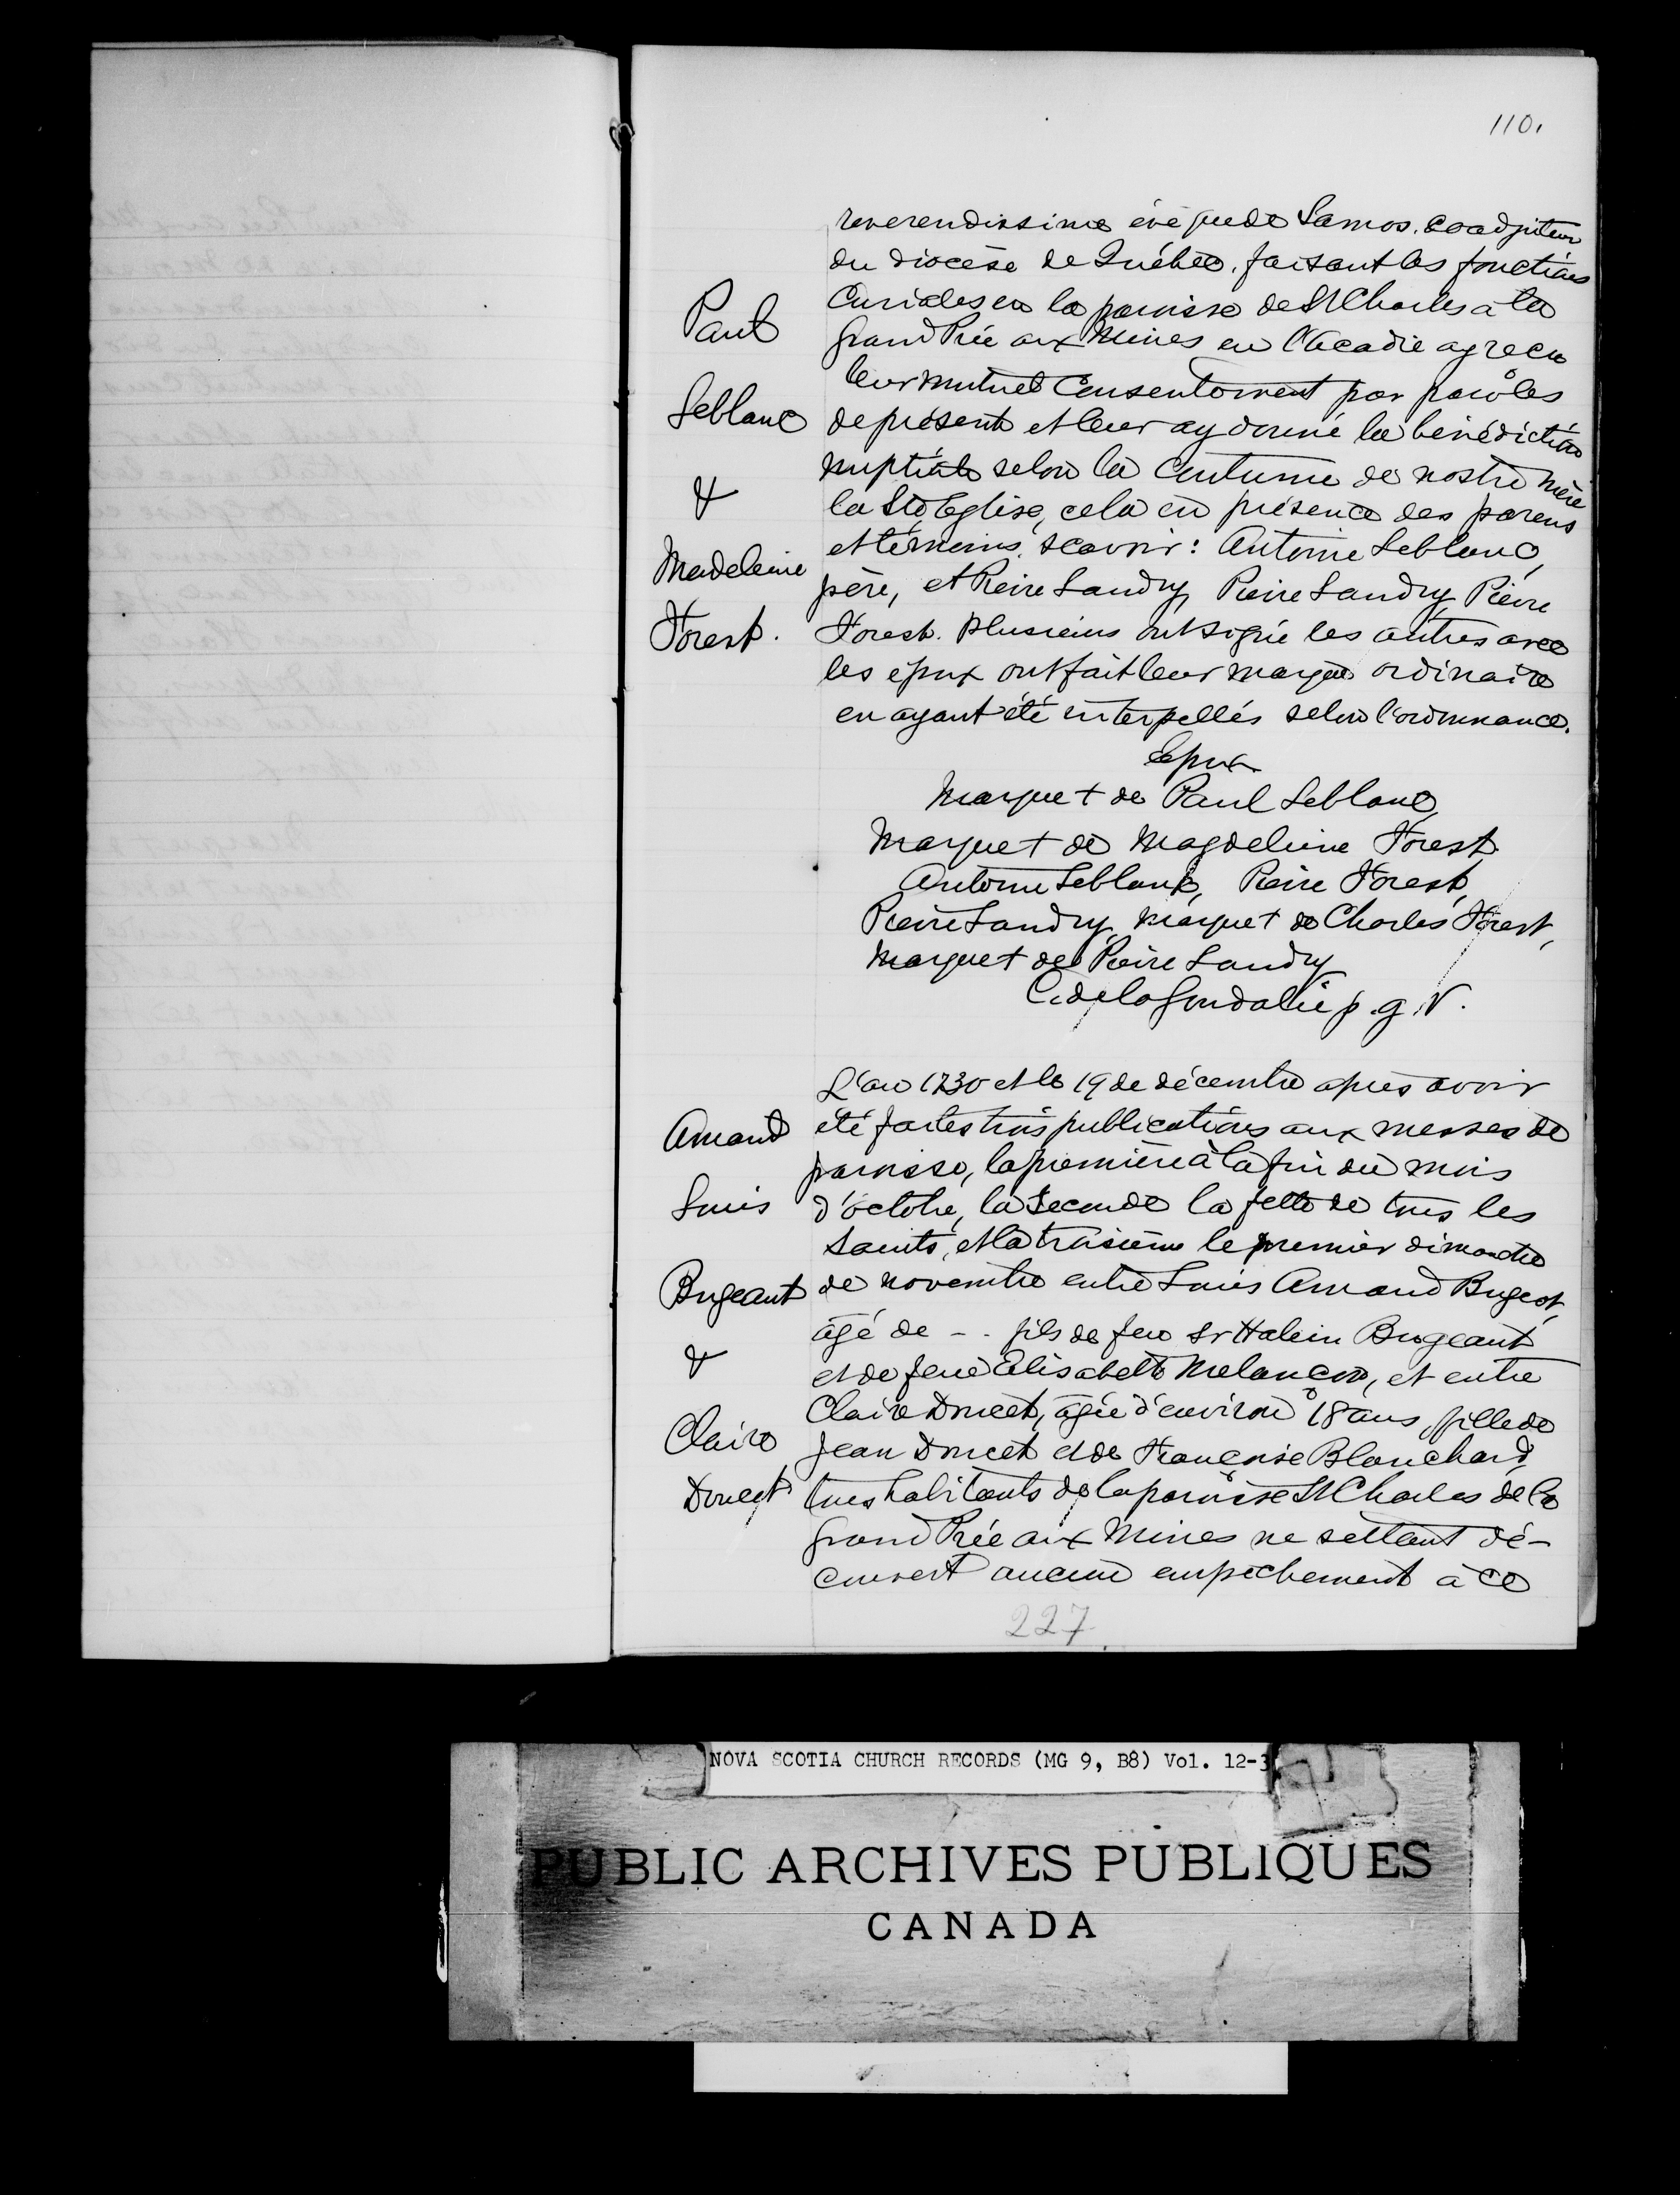 110.
reverendissime évêque de Samos. Coadjuteur
du diocèse de Québec. faisant les fonctions
Curiales en la paroisse de St Charles à la
Grand Prée aux Mines en l'Acadie ay recu
leur mutuel Consentement par paroles
de présent et leur ay donné la bénédiction
nuptiale selon la Coutume de nostre mère
la Ste Eglise, cela en présence des parens
et témoins, scavoir : Antoine Leblanc,
père, et Pierre Landry, Pierre Landry, Pierre
Forest. Plusieurs ont signé les autres avec
les epoux ont fait leur marque ordinaire
en ayant été interpellés selon l'ordonnance.
Paul
Leblanc
&
Madeleine
Forest.
Epoux
Marque + de Paul Leblanc,
Marque + de Magdeleine Forest,
Antoine Leblank, Pierre Forest,
Pierre Landry, Marque + de Charles Forest,
Marque + de Pierre Landry
C. de la Goudalie p. g. V.
L'an 1730 et le 19 de décembre après avoir
été faites trois publications aux messes de
paroisse, la première à la fin du mois
d'octobre, la seconde la fette de tous les
Saints, et la troisième le premier dimanche
de novembre entre Louis Amand Bugeot,
âgé de - . fils de feu Sr Halein Bugeant
et de feue Elisabeth Melançon, et entre
Claire Doucet, âgée d'environ 18 ans, fille de
Jean Doucet et de Françoise Blanchard,
tous habitants de la paroisse St Charles de la
Grand Prée aux Mines ne settant dé-
couvert aucun empêchement à ce
Amand
Louis
Bugeant
&
Claire
Doucet
227
NOVA SCOTIA CHURCH RECORDS (MG 9, B8) Vol. 12-3
PUBLIC ARCHIVES PUBLIQUES
CANADA